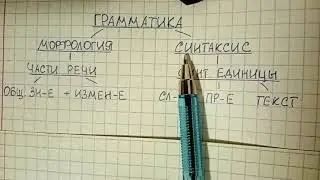 ГРАММАТИКА
МОРФОЛОГИЯ СИНТАКСИС
ЧАСТИ РЕЧИ ЕДИНИЦЫ
ОБЩ. ЗН-Е + ИЗМЕН-Е СЛ- ПР-Е ТЕКСТ